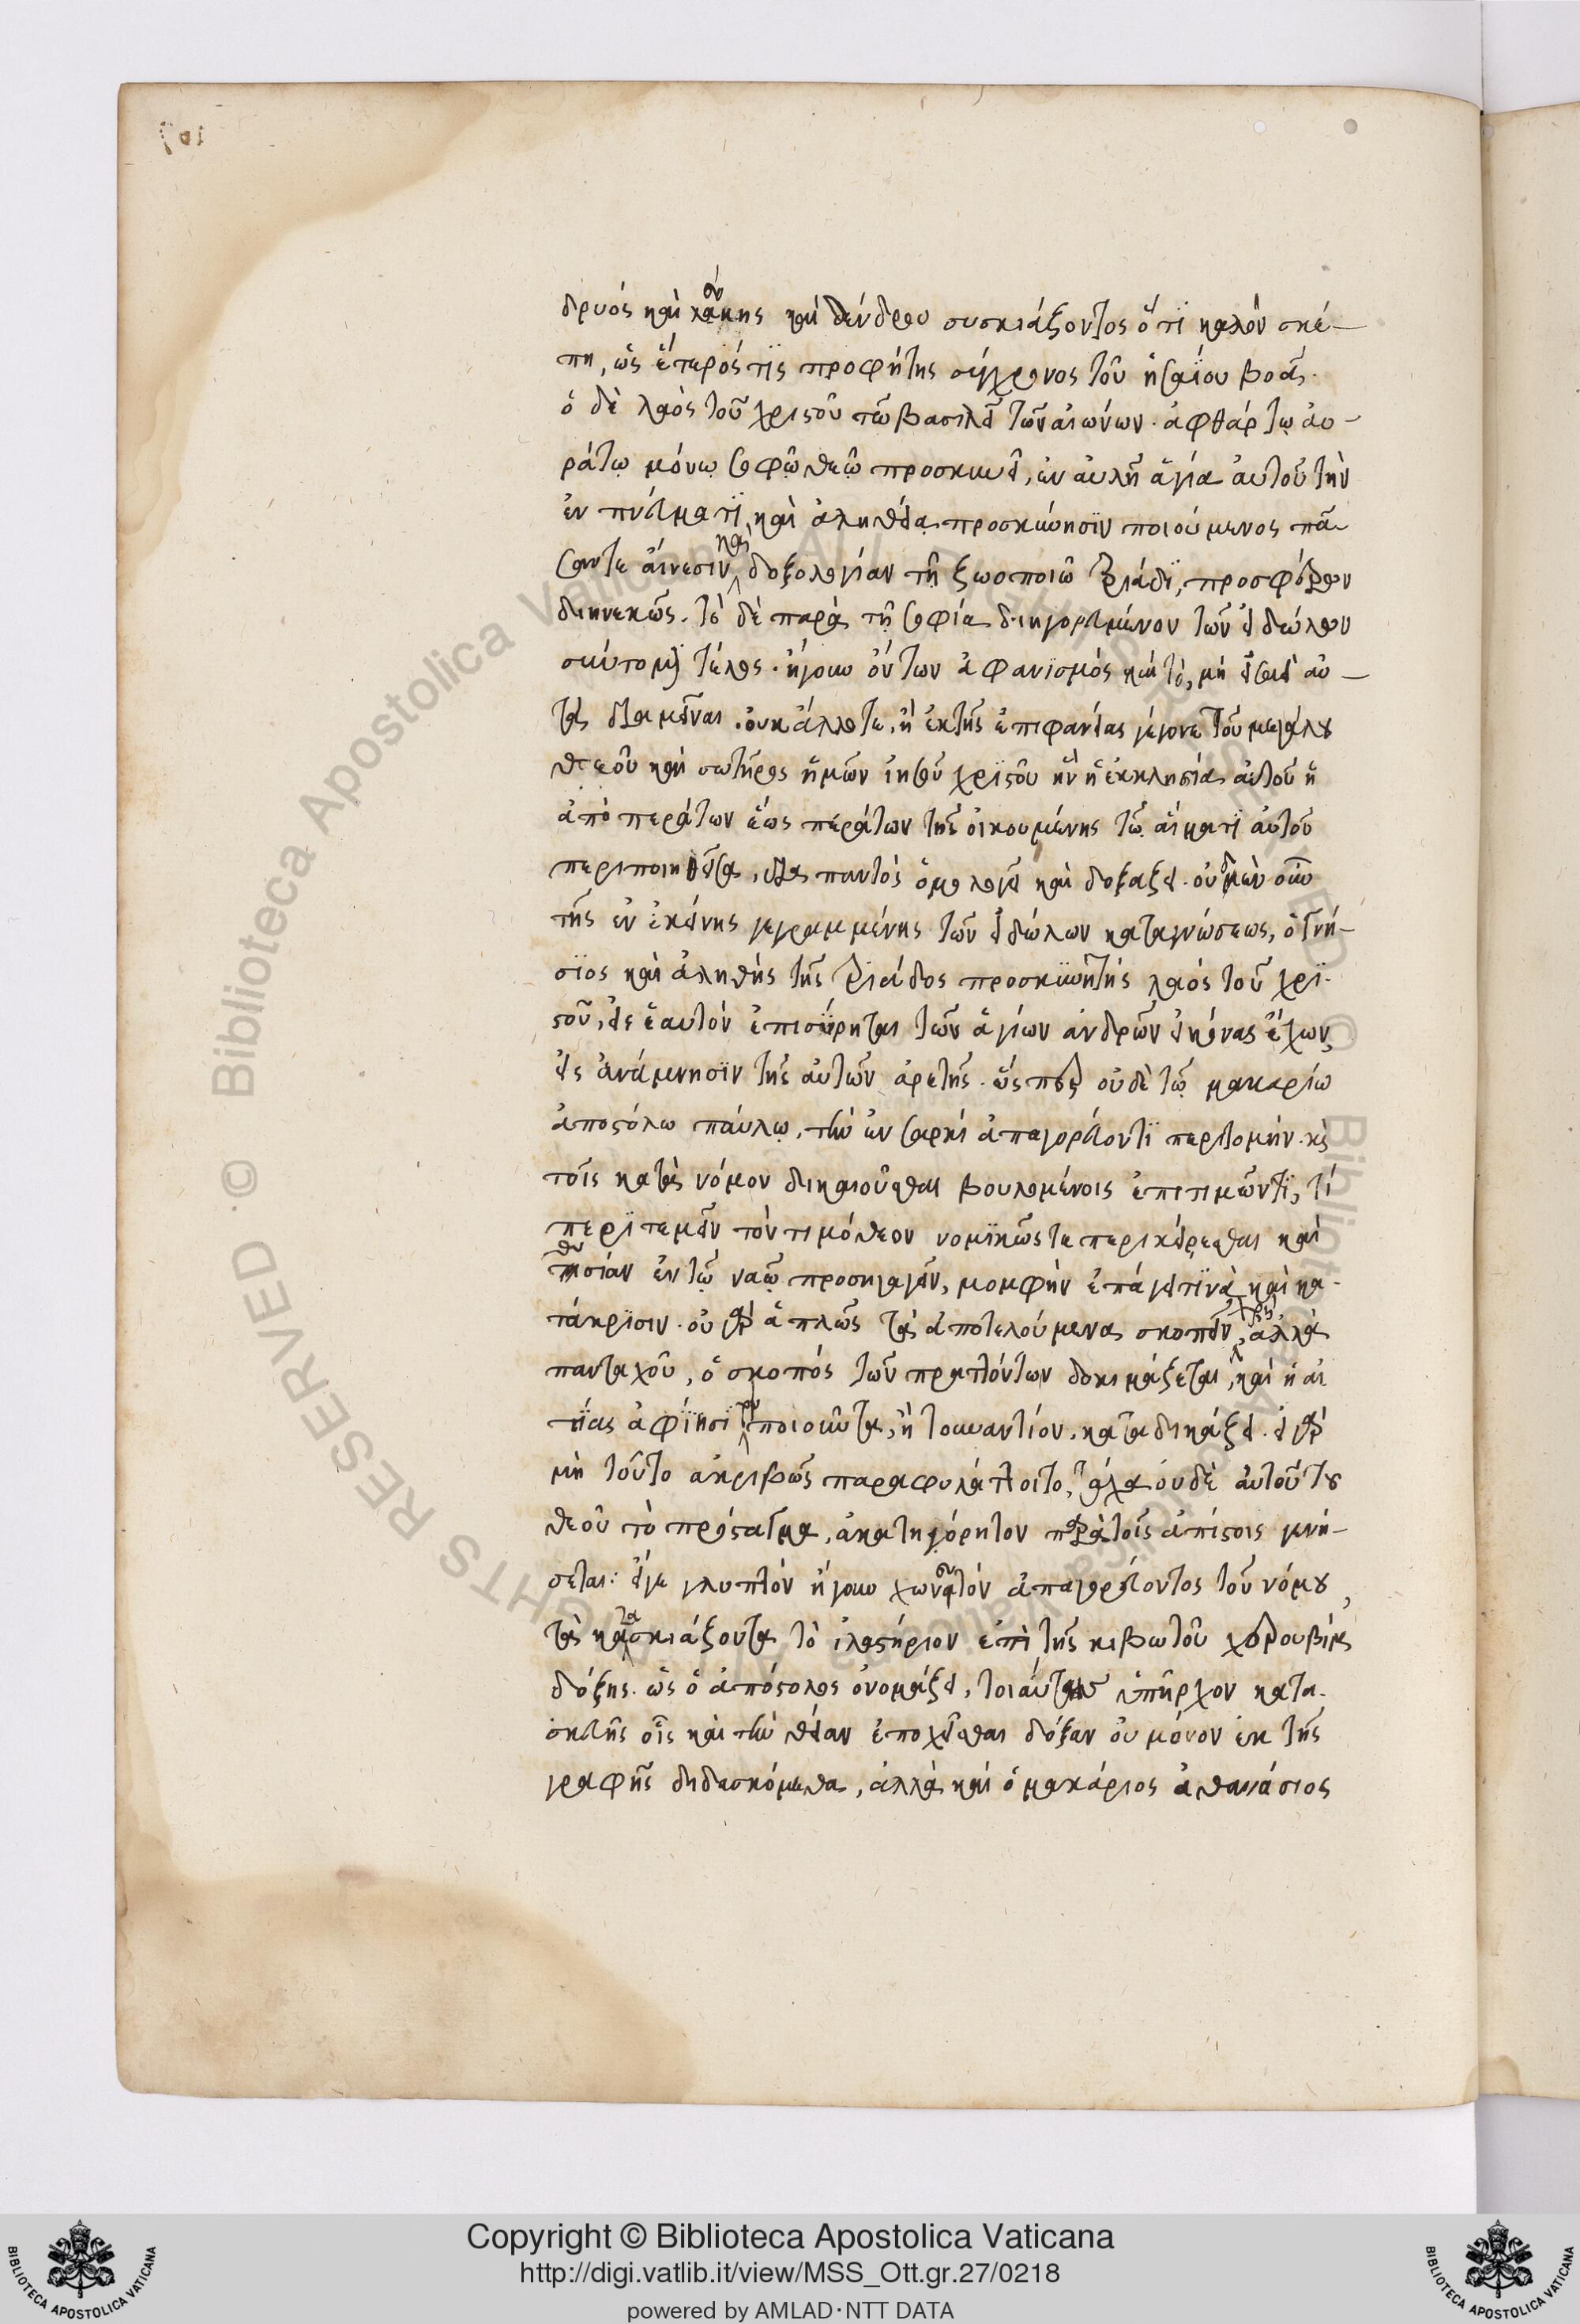 δρυός καὶ λεύκης καὶ δένδρου συσκιάζοντος ὅτι καλὸν σκέ-
πη, ὡς ἕτερός τις προφήτης σύγχρονος τοῦ ἡσαΐου βοᾷ.
ὁ δὲ λαὸς τοῦ χριστοῦ τῶ βασιλεῖ τῶν αἰώνων. ἀφθάρτῳ ἀο-
ράτῳ μόνῳ σοφῷ θεῷ προσκυνεῖ, ἐν αὐλῇ ἁγία αὐτοῦ τὴν
ἐν πνεύματι καὶ ἀληθεία προσκύνησιν ποιούμενος πᾶ
σαν τε αἴνεσιν καὶ δοξολογίαν τῇ ζωοποιῶ τριάδι, προσφέρων
διηνεκῶς. τὸ δὲ παρὰ τῇ σοφία διηγορευμένον τῶν εἰδώλων
σύντομον τέλος. ἤγουν ὄντων ἀφανισμὸς καὶ τὸ, μὴ εἰσαεὶ αὐ-
τὰ διαμεῖναι. οὐκ ἄλλοτε, ἢ ἐκ τῆς ἐπιφανείας γέγονε τοῦ μεγάλου
θεοῦ καὶ σωτῆρος ἡμῶν ἰησοῦ χριστοῦ ἣν ἡ ἐκκλησία αὐτοῦ ἡ
ἀπὸ περάτων ἕως περάτων τῆς οἰκουμένης τῷ αἵματι αὐτοῦ
περιποιηθεῖσα, διὰ παντὸς ὁμολογεῖ καὶ δοξάζει. οὐ μὲν οὖν
τῆς ἐν ἐκείνης γεγραμμένης τῶν εἰδώλων καταγνώσεως, ὁ γνή-
σιος καὶ ἀληθὴς τῆς τριάδος προσκυνητὴς λαὸς τοῦ χρι-
στοῦ, εἰς ἑαυτὸν ἐπισύρηται τῶν ἁγίων ἀνδρῶν εἰκόνας ἔχων
εἰς ἀνάμνησιν τῆς αὐτῶν ἀρετῆς. ὥσπερ οὐδὲ τῷ μακαρίω
ἀποστόλω παύλῳ, τὴν ἐν σαρκὶ ἀπαγορεύοντι περιτομήν. κ(αὶ)
τοῖς κατὰ νόμον δικαιοῦσθαι βουλομένοις ἐπιτιμῶντι, τί
περιτεμεῖν τὸν τιμόθεον νομικῶς τε περικείρεσθαι καὶ
θυσίαν ἐν τῷ ναῷ προσηγαγεῖν, μομφὴν ἐπάγει τινὰ καὶ κα-
τάκρισιν. οὐ γὰρ ἁπλῶς τὰ ἀποτελούμενα σκοπεῖν χρὴ, ἀλλὰ
πανταχοῦ, ὁ σκοπός τῶν πραττόντων δοκιμάζεται, καὶ ἢ αἰ
τίας ἀφίησι τὸν ποιοῦντα, ἢ τοὐναντίον, καταδικάζει. εἰ γὰρ
μὴ τοῦτο ἀκριβῶς παραφυλάττοιτο, τάχα οὐδὲ αὐτοῦ τοῦ
θεοῦ τὸ πρόσταγμα, ἀκατηγόρητον παρὰ τοῖς ἀπίστοις γενή-
σεται: εἴγε γλυπτὸν ἤγουν χωνευτὸν ἀπαγορεύοντος τοῦ νόμου,
τὰ κατασκιάζοντα τὸ ἱλαστήριον ἐπὶ τῆς κιβωτοῦ χερουβὶμ
δόξης. ὡς ὁ ἀπόστολος ὀνομάζει, τοιαύτης ὑπῆρχον κατα-
σκευῆς οἷς καὶ τὴν θείαν ἐποχεῖσθαι δόξαν οὐ μόνον ἐκ τῆς
γραφῆς διδασκόμεθα, ἀλλὰ καὶ ὁ μακάριος ἀθανάσιος
Copyright © Biblioteca Apostolica Vaticana
http://digi.vatlib.it/view/MSS_Ott.gr.27/0218
powered by AMLAD·NTT DATA